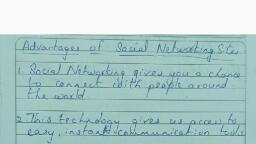 Advantages of Social Networking Site
1. Social Networking gives you a chance
to connect with people around
the world
2. This technology gives us access to
easy, instant communication tools